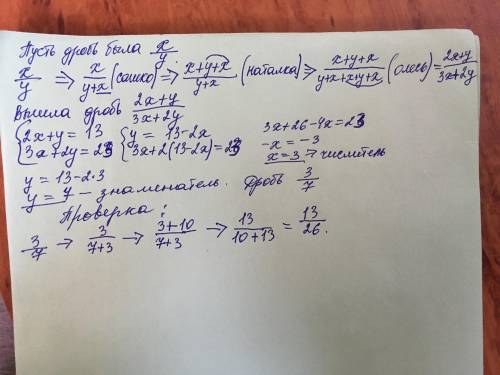 Пусть дробь была x/y.
x/y ⇒ x/(y+x) (сашко) ⇒ (x+y+x)/(y+x) (наталка) ⇒ (x+y+x)/(y+x+x+y+x) (олесь) = (2x+y)/(3x+2y)
Вышла дробь (2x+y)/(3x+2y)
{2x+y=13 {y=13-2x 3x+26-4x=23
{3x+2y=23 {3x+2(13-2x)=23 -x=-3
x=3 → числитель
y=13-2·3
y=7 - знаменатель. Дробь 3/7
Проверка:
3/7 → 3/(7+3) → (3+10)/(7+3) → 13/(10+13) = 13/26.